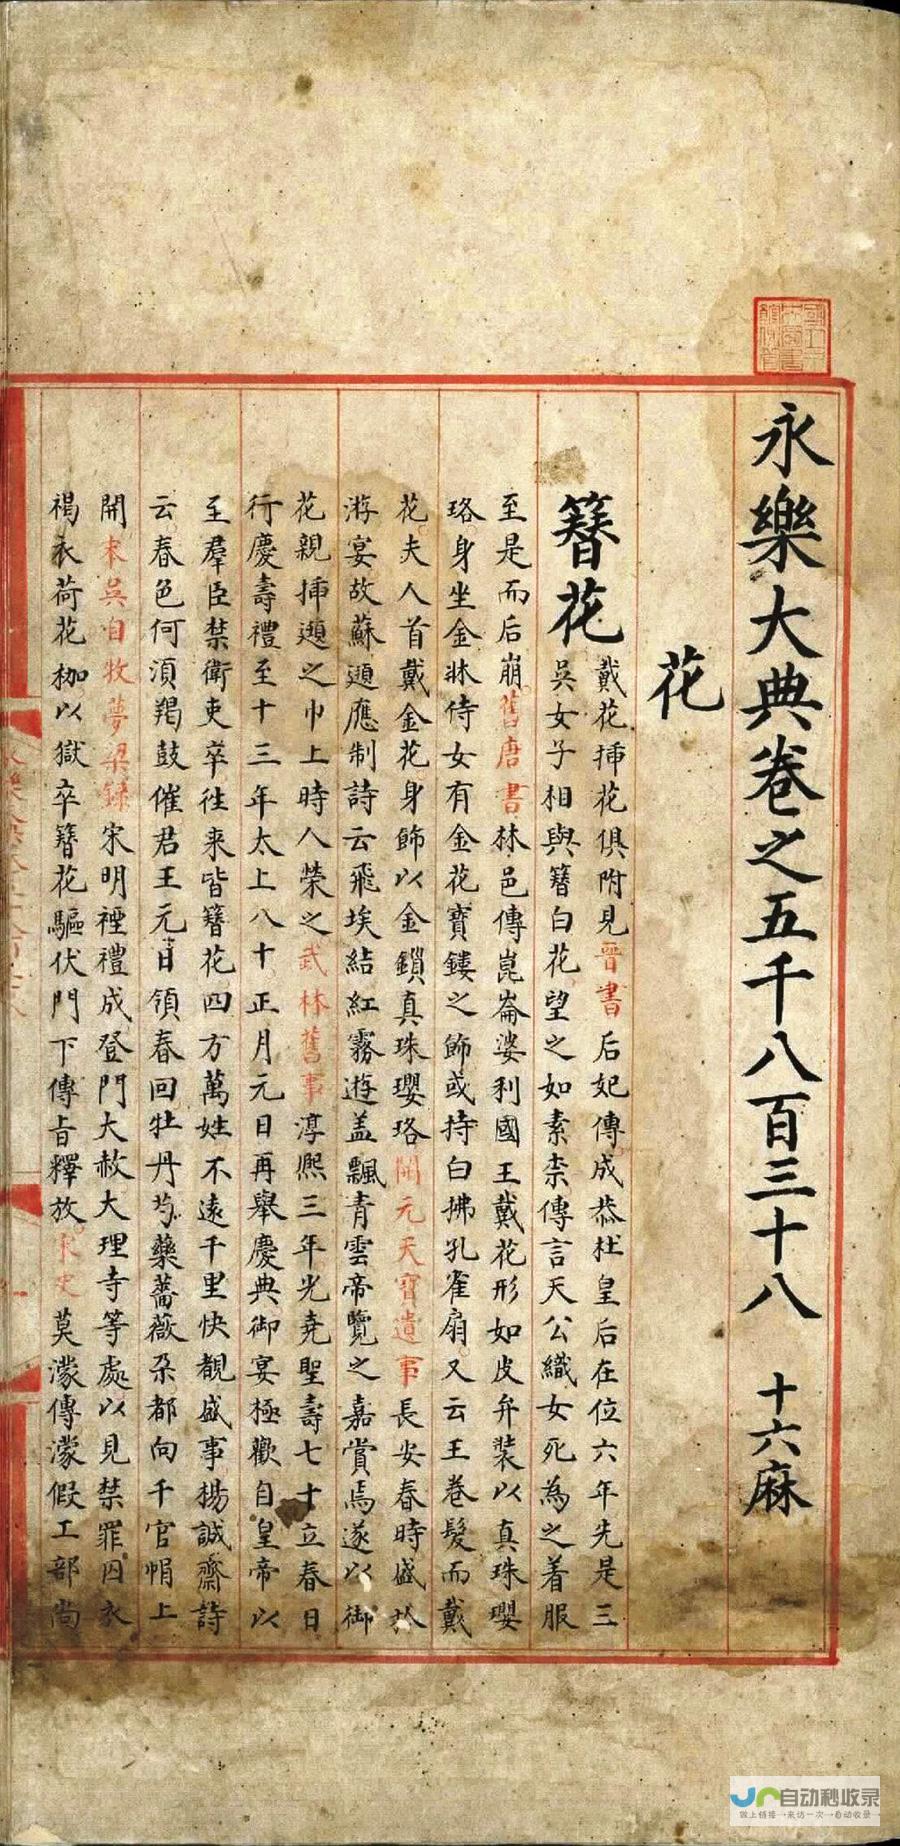 永樂大典卷之五千八百三十八 十六麻
花
簪花
戴花揷花俱附見晉書后妃傳成恭杜皇后在位六年先是三
吳女子相與簪白花望之如素柰傳言天公織女死為之着服
至是而后崩舊唐書林邑傳崑崙婆利國王戴花形如皮弁裝以真珠瓔
珞身坐金牀侍女有金花寶鏤之飾或持白拂孔雀扇又云王卷髮而戴
花夫人首戴金花身飾以金鎖真珠瓔珞開元天寶遺事長安春時盛於
游宴故蘇頲應制詩云飛埃結紅霧遊盖飄青雲帝覽之嘉賞焉遂以御
花親揷頲之巾上時人榮之武林舊事淳熙三年光堯聖壽七十立春日
行慶壽禮至十三年太上八十正月元日再舉慶典御宴極歡自皇帝以
至羣臣禁衛吏卒徃来皆簪花四方萬姓不逺千里快覩盛事楊誠齋詩
云春色何湏羯鼓催君王元日領春回牡丹芍藥薔薇朶都向千官帽上
開宋吳自牧夢梁錄宋明禋禮成登門大赦大理寺等處以見禁罪囚衣
褐衣荷花枷以獄卒簪花驅伏門下傳旨釋放宋史莫濛傳濛假工部尚
自动秒收录
做上链接→来访一次→自动收录